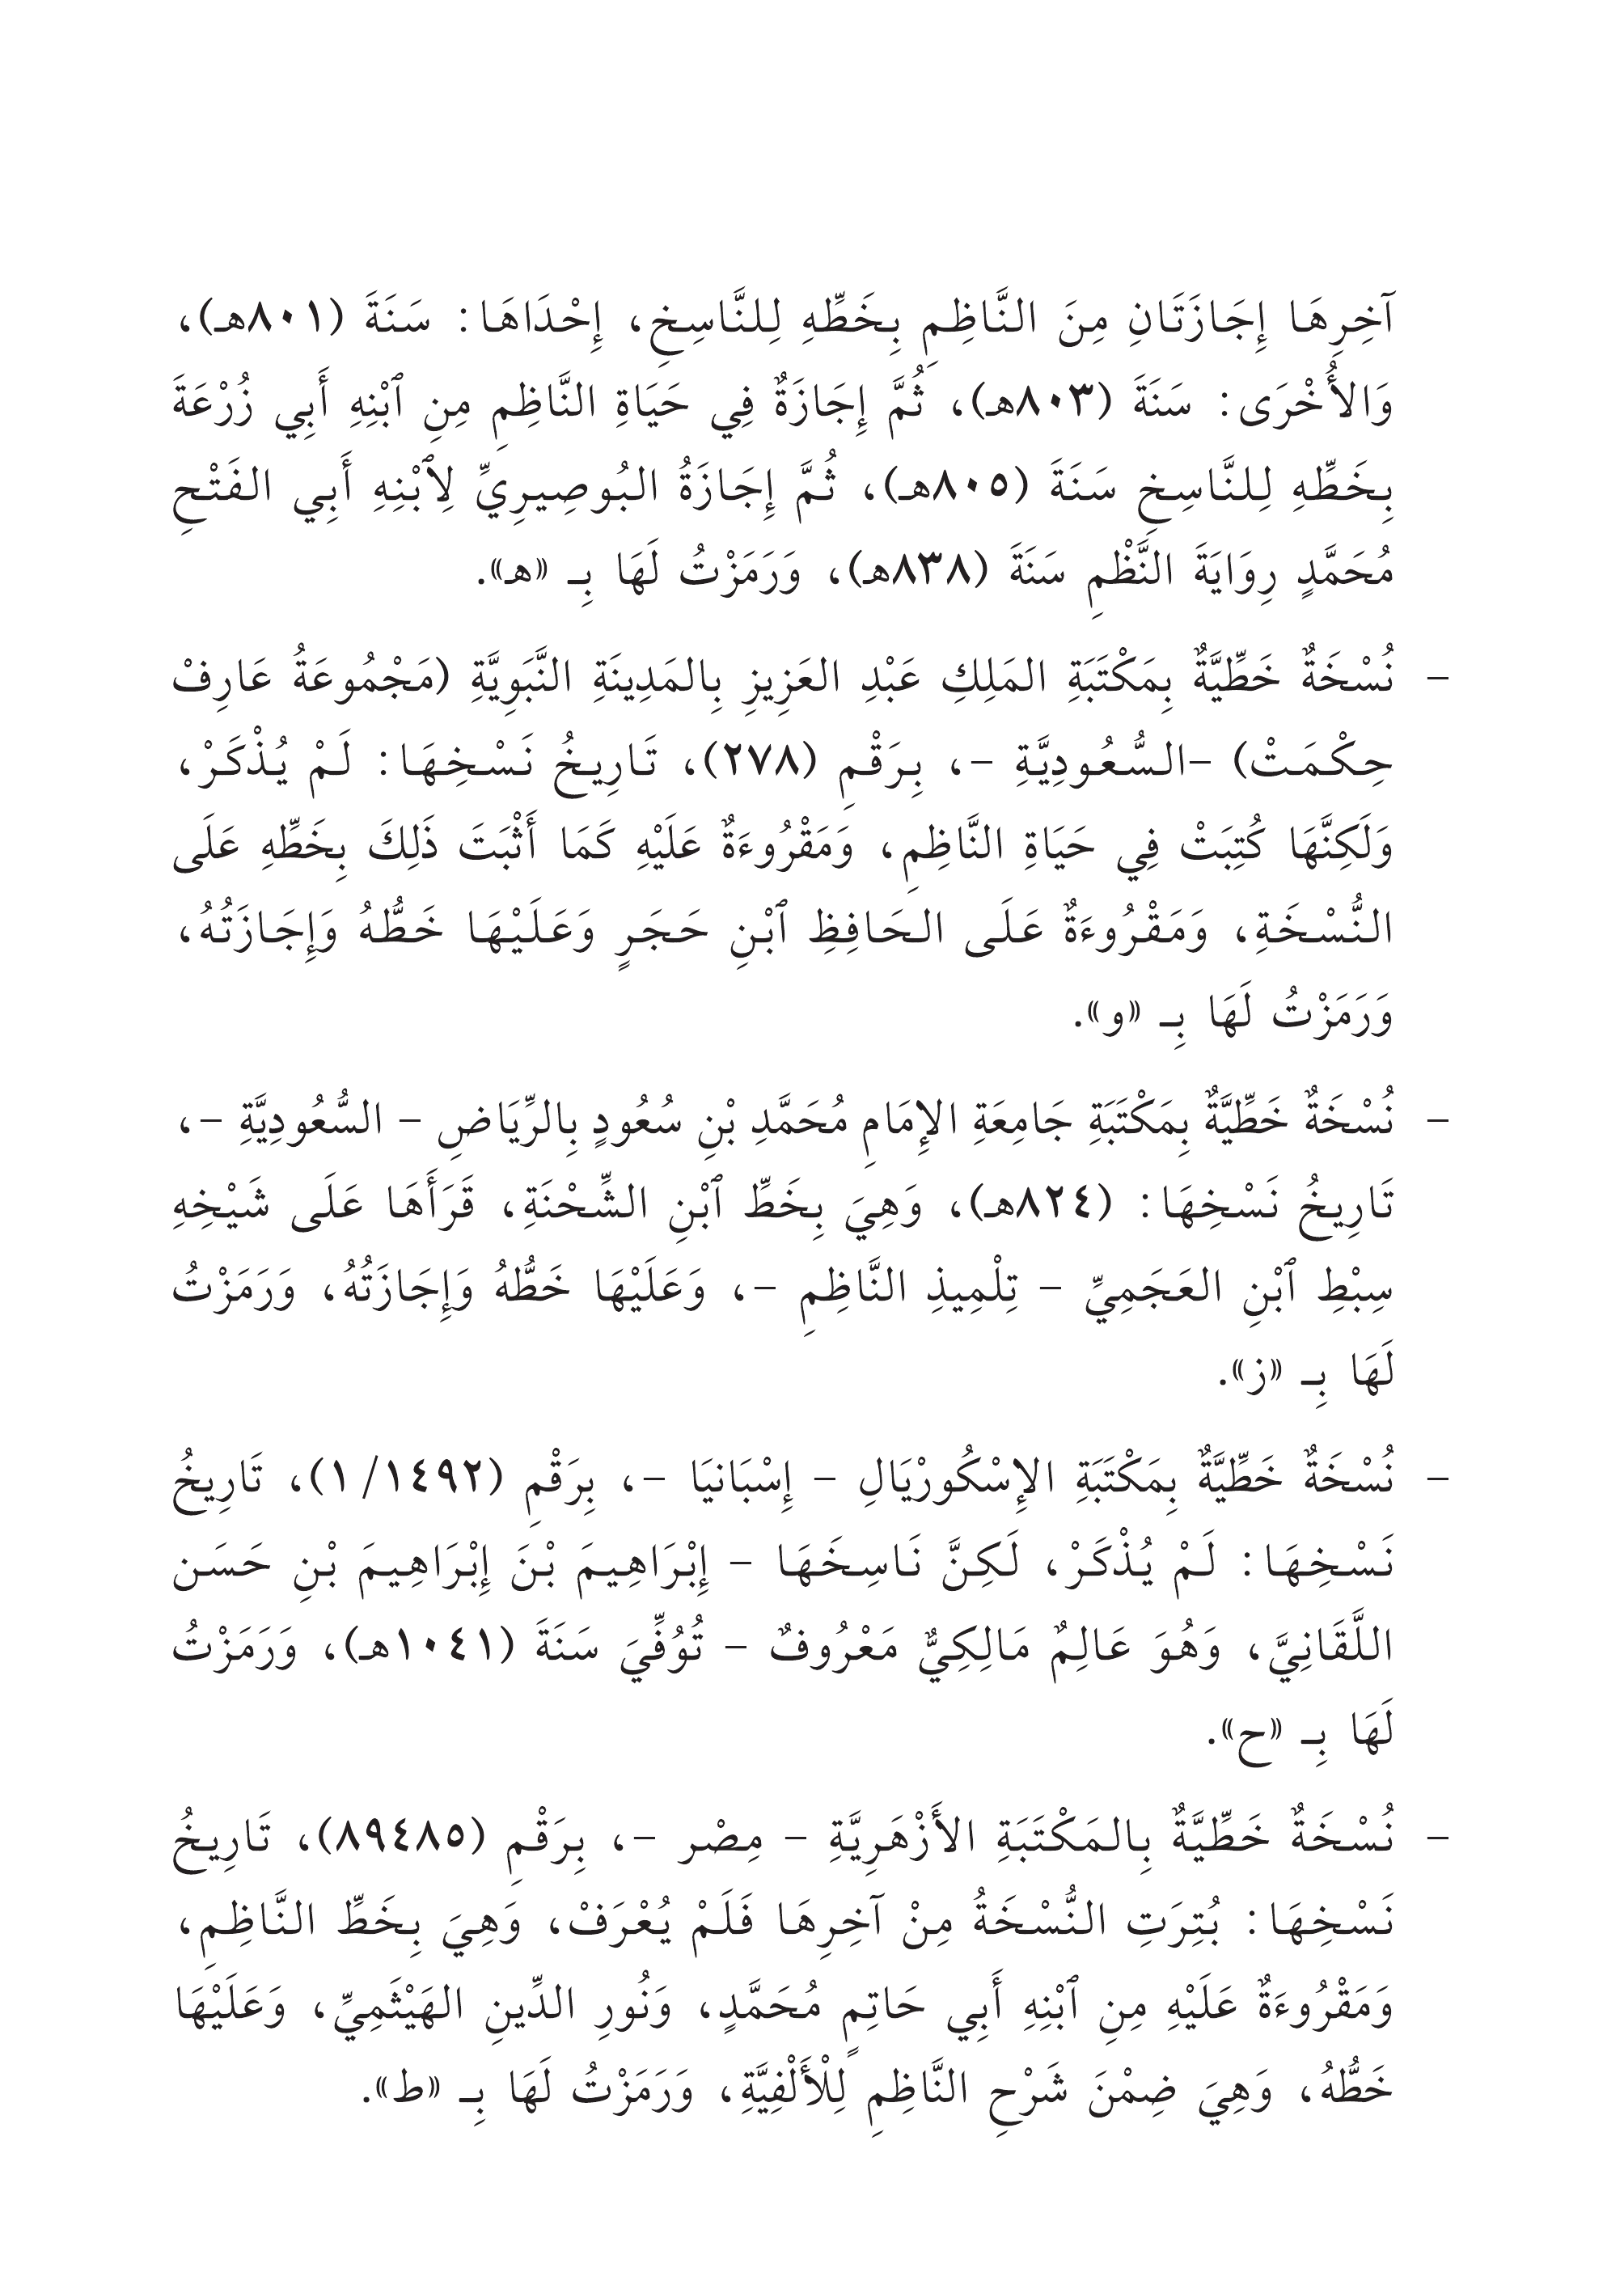 آخِرِهَا إِجَازَتَانِ مِنَ النَّاظِمِ بِخَطِّهِ لِلنَّاسِخِ، إِحْدَاهَا: سَنَةَ (٨٠١هـ)،
وَالأُخْرَى: سَنَةَ (٨٠٣هـ)، ثُمَّ إِجَازَةٌ فِي حَيَاةِ النَّاظِمِ مِنِ ٱبْنِهِ أَبِي زُرْعَةَ
بِخَطِّهِ لِلنَّاسِخِ سَنَةَ (٨٠٥هـ)، ثُمَّ إِجَازَةُ البُوصِيرِيِّ لِٱبْنِهِ أَبِي الفَتْحِ
مُحَمَّدٍ رِوَايَةَ النَّظْمِ سَنَةَ (٨٣٨هـ)، وَرَمَزْتُ لَهَا بِـ «هـ».
- نُسْخَةٌ خَطِّيَّةٌ بِمَكْتَبَةِ المَلِكِ عَبْدِ العَزِيزِ بِالمَدِينَةِ النَّبَوِيَّةِ (مَجْمُوعَةُ عَارِفْ
حِكْمَتْ) -السُّعُودِيَّةِ -، بِرَقْمِ (٢٧٨)، تَارِيخُ نَسْخِهَا: لَمْ يُذْكَرْ،
وَلَكِنَّهَا كُتِبَتْ فِي حَيَاةِ النَّاظِمِ، وَمَقْرُوءَةٌ عَلَيْهِ كَمَا أَثْبَتَ ذَلِكَ بِخَطِّهِ عَلَى
النُّسْخَةِ، وَمَقْرُوءَةٌ عَلَى الحَافِظِ ٱبْنِ حَجَرٍ وَعَلَيْهَا خَطُّهُ وَإِجَازَتُهُ،
وَرَمَزْتُ لَهَا بِـ «و».
- نُسْخَةٌ خَطِّيَّةٌ بِمَكْتَبَةِ جَامِعَةِ الإِمَامِ مُحَمَّدِ بْنِ سُعُودٍ بِالرِّيَاضِ - السُّعُودِيَّةِ -،
تَارِيخُ نَسْخِهَا: (٨٢٤هـ)، وَهِيَ بِخَطِّ ٱبْنِ الشِّحْنَةِ، قَرَأَهَا عَلَى شَيْخِهِ
سِبْطِ ٱبْنِ العَجَمِيِّ - تِلْمِيذِ النَّاظِمِ -، وَعَلَيْهَا خَطُّهُ وَإِجَازَتُهُ، وَرَمَزْتُ
لَهَا بِـ «ز».
- نُسْخَةٌ خَطِّيَّةٌ بِمَكْتَبَةِ الإِسْكُورْيَالِ - إِسْبَانيَا -، بِرَقْمِ (١٤٩٢/ ١)، تَارِيخُ
نَسْخِهَا: لَمْ يُذْكَرْ، لَكِنَّ نَاسِخَهَا - إِبْرَاهِيمَ بْنَ إِبْرَاهِيمَ بْنِ حَسَن
اللَّقَانِيَّ، وَهُوَ عَالِمٌ مَالِكِيٌّ مَعْرُوفٌ - تُوُفِّيَ سَنَةَ (١٠٤١هـ)، وَرَمَزْتُ
لَهَا بِـ «ح».
- نُسْخَةٌ خَطِّيَّةٌ بِالمَكْتَبَةِ الأَزْهَرِيَّةِ - مِصْر -، بِرَقْمِ (٨٩٤٨٥)، تَارِيخُ
نَسْخِهَا: بُتِرَتِ النُّسْخَةُ مِنْ آخِرِهَا فَلَمْ يُعْرَفْ، وَهِيَ بِخَطِّ النَّاظِمِ،
وَمَقْرُوءَةٌ عَلَيْهِ مِنِ ٱبْنِهِ أَبِي حَاتِمٍ مُحَمَّدٍ، وَنُورِ الدِّينِ الهَيْثَمِيِّ، وَعَلَيْهَا
خَطُّهُ، وَهِيَ ضِمْنَ شَرْحِ النَّاظِمِ لِلْأَلْفِيَّةِ، وَرَمَزْتُ لَهَا بِـ «ط».